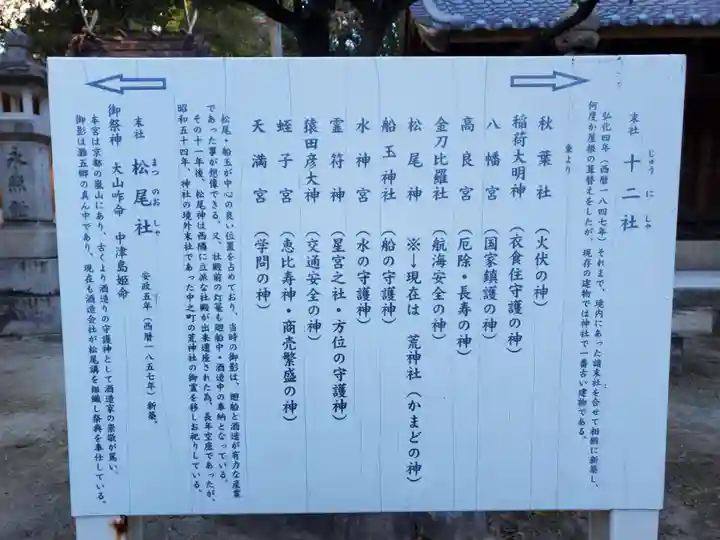 末社 十二社
じゅうにしゃ
弘化四年(西暦一八四七年)それまで、境内にあった諸末社を合せて相殿に新築し、
何度か屋根の葺替えをしたが、現存の建物では神社で一番古い建物である。
東より
秋葉社 (火伏の神)
稲荷大明神 (衣食住守護の神)
八幡宮 (国家鎮護の神)
高良宮 (厄除・長寿の神)
金刀比羅社 (航海安全の神)
松尾神 ※→現在は 荒神社(かまどの神)
船玉神社 (船の守護神)
水神宮 (水の守護神)
霊符神 (星宮之社・方位の守護神)
猿田彦大神 (交通安全の神)
蛭子宮 (恵比寿神・商売繁盛の神)
天満宮 (学問の神)
松尾・船玉が中心の良い位置を占めており、当時の御影は、廻船と酒造が有力な産業
であった事が想像できる。又、社殿前の灯篭も廻船中・酒造中の奉納となっている。
その十一年後、松尾神は西隣に立派な社殿が出来遷座された為、長年空座であったが、
昭和五十四年、神社の境外末社であった中之町の荒神社の御霊を移しお祀りしている。
末社 松尾社 安政五年(西暦一八五七年)新築。
まつのおしゃ
御祭神 大山咋命 中津島姫命
本宮は京都の嵐山にあり、古くより酒造りの守護神として酒造家の崇敬が篤い。
御影は灘五郷の真ん中であり、現在も酒造会社が松尾講を組織し祭典を奉仕している。
永照